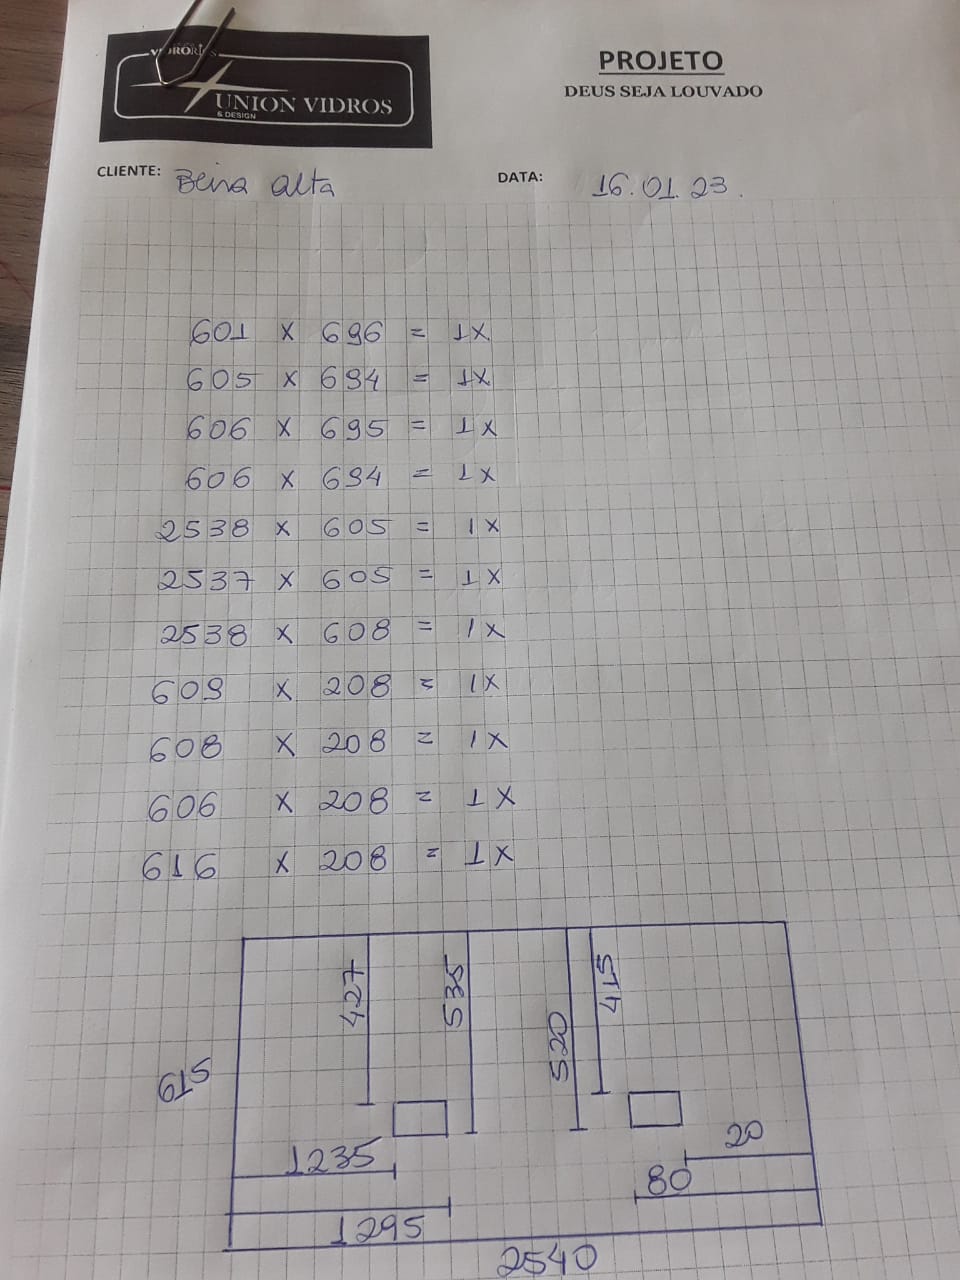 PROJETO
DEUS SEJA LOUVADO
UNION VIDROS
& DESIGN
CLIENTE: Beira alta
DATA: 16.01.23.
601 x 696 = 1x
605 x 694 = 1x
606 x 695 = 1x
606 x 694 = 1x
2538 x 605 = 1x
2537 x 605 = 1x
2538 x 608 = 1x
609 x 208 = 1x
608 x 208 = 1x
606 x 208 = 1x
616 x 208 = 1x
427
535
520
415
615
1235
20
80
1295
2540